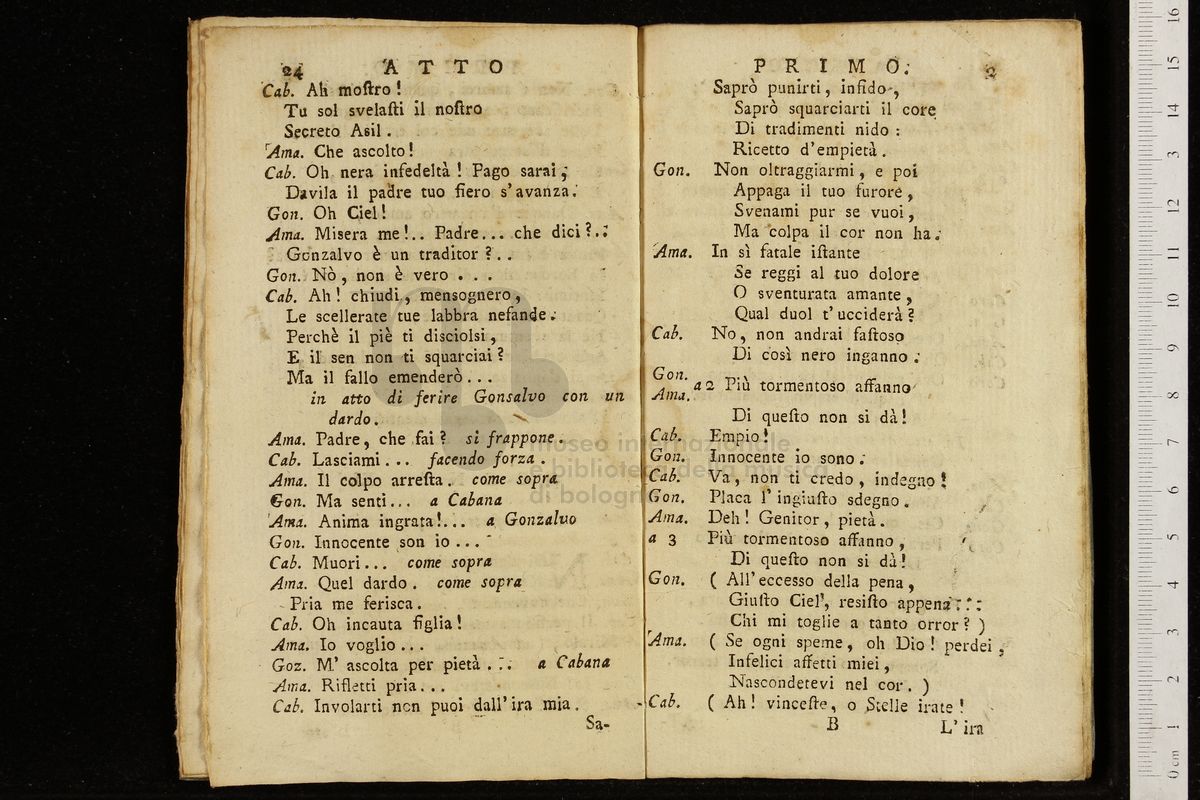 24 ATTO
Cab. Ah moſtro!
Tu sol svelaſti il noſtro
Secreto Asil.
Ama. Che ascolto!
Cab. Oh nera infedeltà! Pago sarai;
Davila il padre tuo fiero s'avanza.
Gon. Oh Ciel!
Ama. Misera me!.. Padre... che dici?..
Gonzalvo è un traditor?..
Gon. Nò, non è vero...
Cab. Ah! chiudi, mensognero,
Le scellerate tue labbra nefande.
Perchè il piè ti disciolsi,
E il sen non ti squarciai?
Ma il fallo emenderò...
in atto di ferire Gonsalvo con un
dardo.
Ama. Padre, che fai? si frappone.
Cab. Lasciami... facendo forza.
Ama. Il colpo arreſta. come sopra
Gon. Ma senti... a Cabana
Ama. Anima ingrata!... a Gonzalvo
Gon. Innocente son io...
Cab. Muori... come sopra
Ama. Quel dardo. come sopra
Pria me ferisca.
Cab. Oh incauta figlia!
Ama. Io voglio...
Goz. M' ascolta per pietà... a Cabana
Ama. Rifletti pria...
Cab. Involarti non puoi dall'ira mia.
Sa-
PRIMO. 2
Saprò punirti, infido,
Saprò squarciarti il core
Di tradimenti nido:
Ricetto d'empietà.
Gon. Non oltraggiarmi, e poi
Appaga il tuo furore,
Svenami pur se vuoi,
Ma colpa il cor non ha.
Ama. In sì fatale iſtante
Se reggi al tuo dolore
O sventurata amante,
Qual duol t'ucciderà?
Cab. No, non andrai faſtoso
Di così nero inganno.
Gon.
Ama. a 2 Più tormentoso affanno
Di queſto non si dà!
Cab. Empio!
Gon. Innocente io sono.
Cab. Va, non ti credo, indegno!
Gon. Placa l' ingiuſto sdegno.
Ama. Deh! Genitor, pietà.
a 3 Più tormentoso affanno,
Di queſto non si dà!
Gon. ( All'eccesso della pena,
Giuſto Ciel, resiſto appena...
Chi mi toglie a tanto orror? )
Ama. ( Se ogni speme, oh Dio! perdei,
Infelici affetti miei,
Nascondetevi nel cor. )
Cab. ( Ah! vinceſte, o Stelle irate!
B L'ira
museo internazionale
e biblioteca della musica
di bologna
0 cm 1 2 3 4 5 6 7 8 9 10 11 12 13 14 15 16